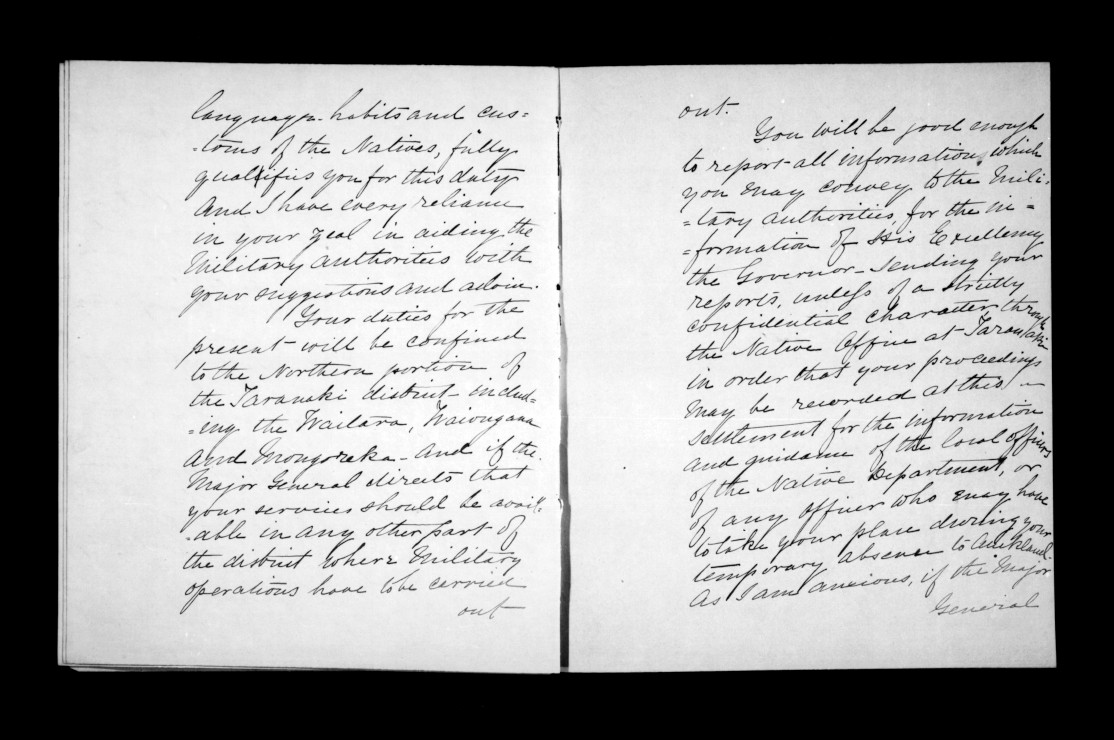 language habits and cus=
=toms of the Natives, fully
qualifies you for this duty
And I have every reliance
in your zeal in aiding the
Military Authorities with
your suggestions and advice.
Your duties for the
present will be confined
to the Northern portion of
the Taranaki district - includ=
=ing the Waitara, Waiongana
and Mongoraka - And if the
Major General directs that
your services should be avail=
=able in any other part of
the district where Military
operations have to be carried
out
out.
You will be good enough
to report all information, which
you may convey to the Mili=
=tary Authorities, for the in=
=formation of His Excellency
the Governor - sending your
reports, unless of a strictly
confidential character, through
the Native Office at Taranaki
in order that your proceedings
may be recorded at this -
settlement for the information
and guidance of the local officers
of the Native Department, or
of any officer who may have
to take your place during your
temporary absence to Auckland.
As I am anxious, if the Major
General